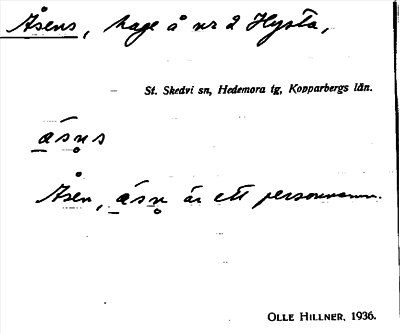 Åsens, hage å nr 2 Hysta,
St. Skedvi sn, Hedemora tg, Kopparbergs län.
á̲sn̥s
Åsen, á̲sn̥ är ett personnamn.
OLLE HILLNER, 1936.